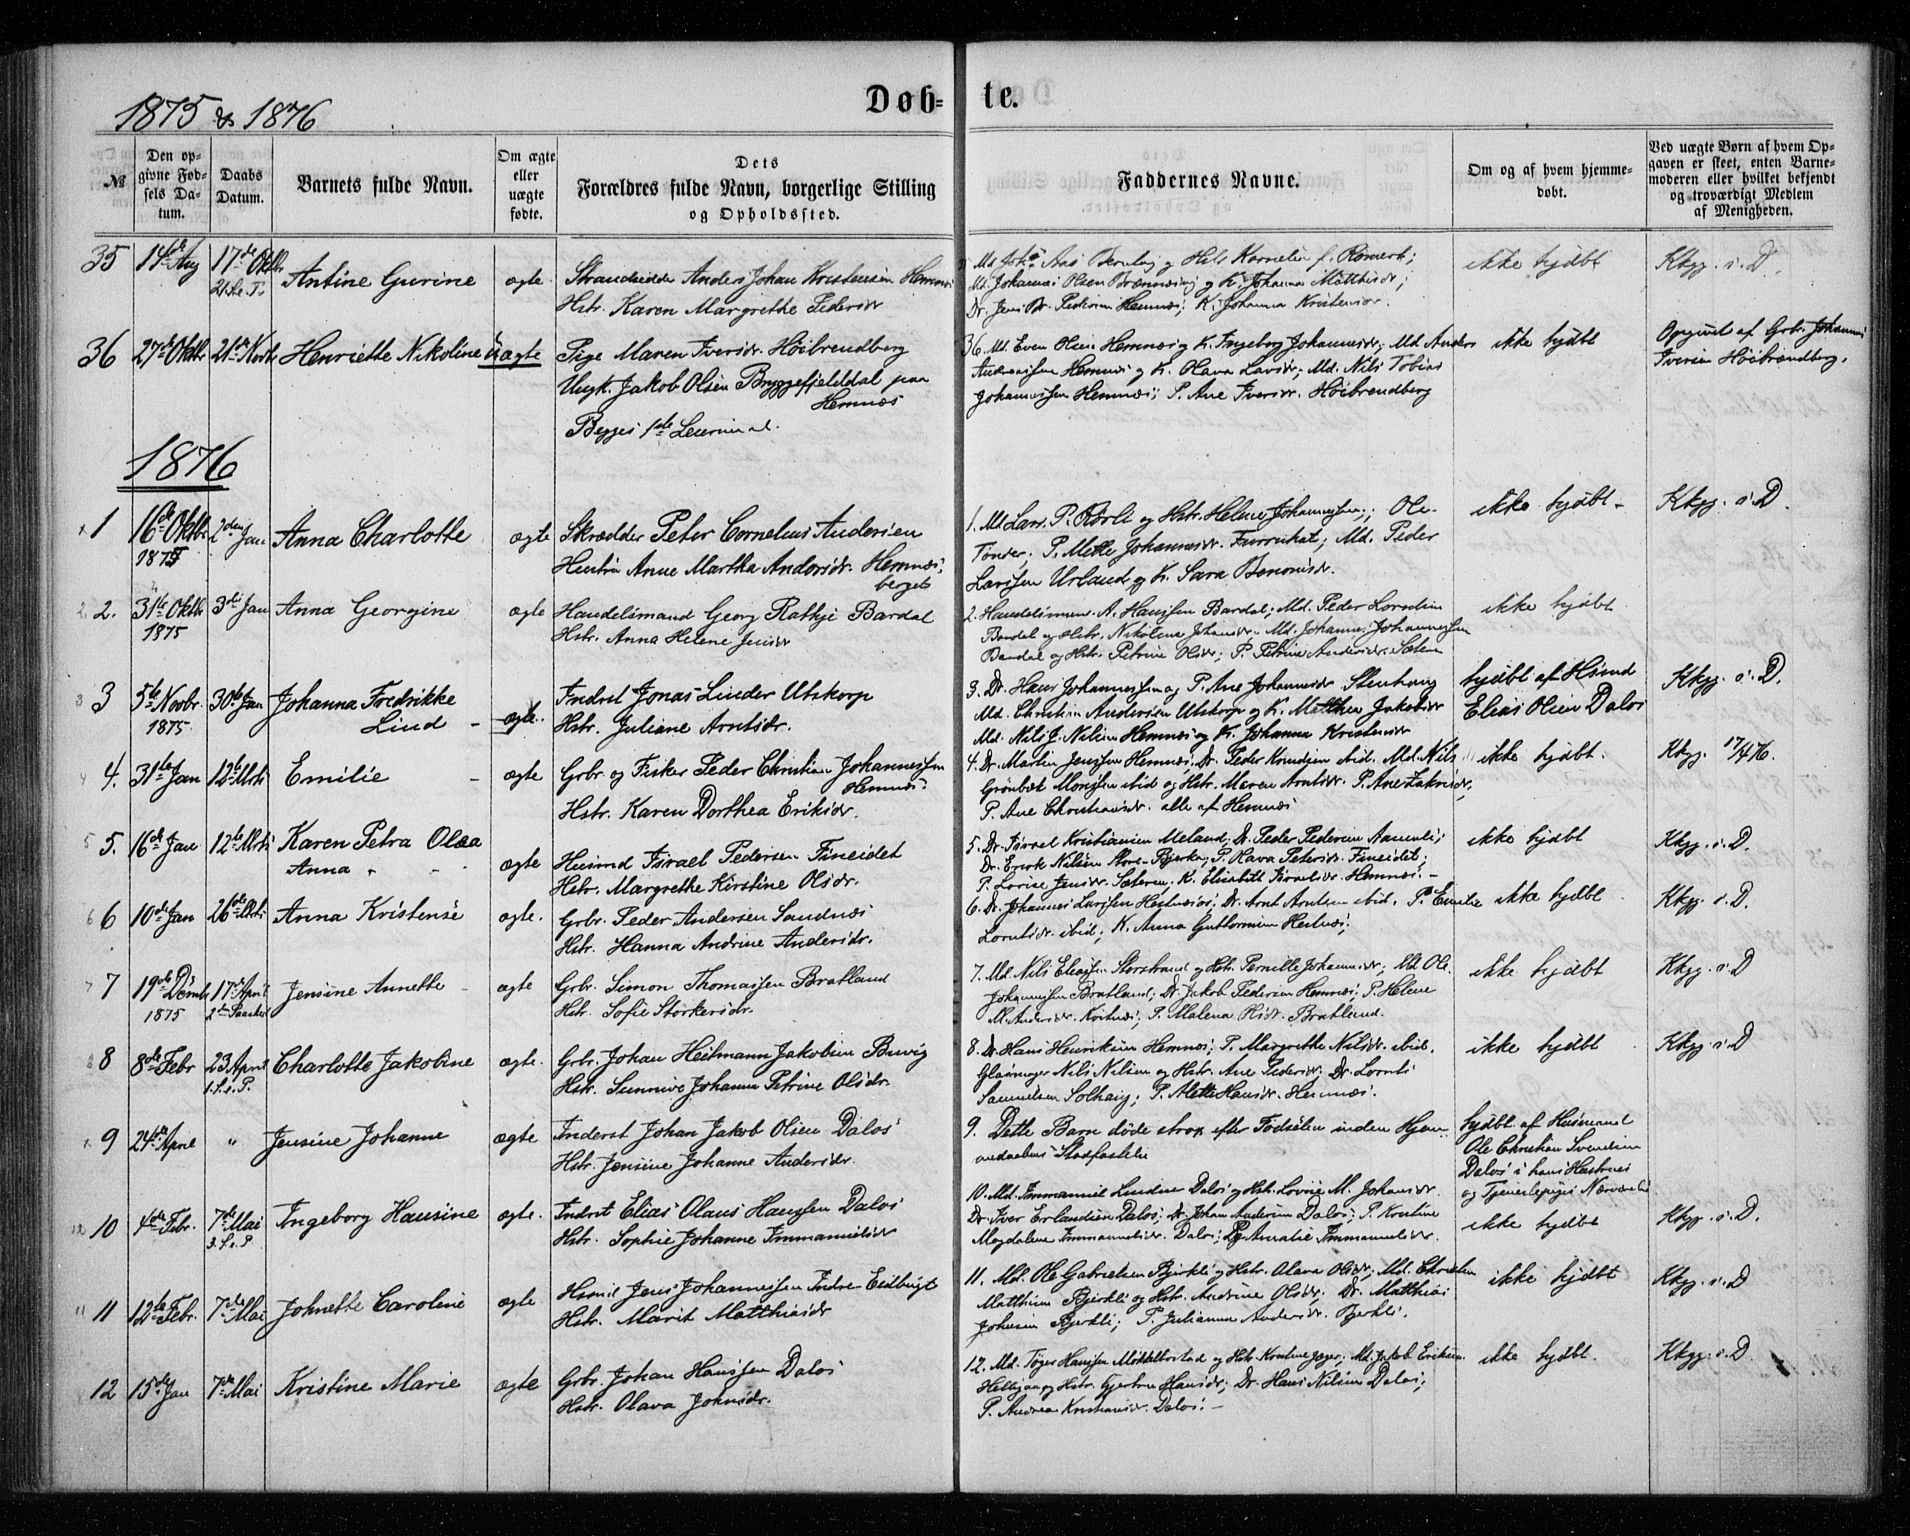 1875 & 1876
Døb- te.
№
Den op-
givne Fød-
sels Da-
tum.
Daabs
Datum.
Barnets fulde Navn.
Om ægte
eller
uægte
fødte.
Dets
Forældres fulde Navn, borgerlige Stilling
og Opholdssted.
Faddernes Navne.
Om og af hvem hjemme-
døbt.
Ved uægte Børn af hvem Op-
gaven er skeet, enten Barne-
moderen eller hvilket bekjendt
og troværdigt Medlem
af Menigheden.
35 14de Aug 17de Oktbr Antine Gurine ægte Strandsidder Anders Johan Kristensen
Hstr. Karen Margrethe Pedersdr
Md. Johannes Olsen og K. Johanna Matthisdr;
Dr. Jens Pedersen Hemnæs; K. Johanna Kristensdr.
ikke hjdbt Kkgg. s. D.
36 27de Oktbr 21de Henriette Nikoline uægte Pige Maren Iversdr. Høibrendberg
Ungk. Jakob Olsen Bryggefjelddal paa
Hemnæs
Begges 1ste Leiermaal.
36. Md. Even Olsen Hemnæs og K. Ingeborg Johannesdr; Md Anders
Andreassen Hemnæs og K. Olava Larsdr; Md. Nils Tobias
Johannessen Hemnæs; P. Ane Iversdr. Høibrendberg
ikke hjdbt
Opgivet af Grbr. Johannes
Iversen Høibrendberg.
1876
1 16de Oktbr 2den Jan Anna Charlotte ægte Skrædder Peter Cornelius Andersen
1875
Hustru Anne Martha Andersdr. Hemnæs
berget
1. Md Lars P. Rørli og Hstr. Helene Johannessen; Ole
Tønder. P. Mette Johannesdr. ; Md. Peder
Larssen Urland og K. Sara Benonisdr.
ikke hjdbt - Kkgg. s. D.
2. 31te Oktbr 3die Jan Anna Georgine ægte Handelsmand Georg Rathje Bardal
1875
Hstr. Anna Helene Jensdr
2. Handelsmand A. Hanssen Bardal; Md. Peder Lorentsen
Bardal og Hstr. Nikoline Johansdr. Md. Johannes Johannessen
Bardal og Hstr. Petrine Olsdr; P. Petrine Andersdr. Sæteren
ikke hjdbt
3 5te Novbr 30te Jan Johanna Fredrikke
1875
Lind - ægte. Inderst Jonas Linder Utskarp
Hstr. Juliane Arntsdr.
3. Dr. Hans Johannessen og P. Ane Johannesdr Stenhaug
Md. Christian Andersen Utskarp og K. Matthea Jakobsdr
Md. Nils J. Nilsen Hemnæs og K. Johanna Kristensdr
hjdbt af Hsmd
Elias Olsen Dalos
Kkgg. s. D.
4. 31te Jan 12te Mrts Emilie - ægte Grbr og Fisker Peder Christian Johannessen
Hemnæs.
Hstr. Karen Dorthea Eriksdr.
4. Dr. Martin Jenssen Hemnæs. Dr. Peder Knudsen ibid. Md. Nils
Grönbek Monssen ibid og Hstr. Maren Arntsdr. P. Ane Zakrisdr,
P. Ane Christiansdr. alle af Hemnæs
ikke hjdbt. Kkgg. 17/4 76.
5. 16de Jan 12te Mrts Karen Petra Olea
Anna ægte Husmd Israel Pedersen Fineidet
Hstr. Margrethe Kirstine Olsdr.
5. Dr. Israel Kristiansen Meland; Dr. Peder Pedersen ;
Dr. Enok Nilsen Store-Bjerka; P. Olava Petersdr. Fineidet;
P. Lovise Jensdr. Sæteren. K. Elisabeth Israelsdr. Hemnæs. -
ikke hjdbt Kkgg. s. D.
6 10de Jan 26de Mrts Anna Kristense ægte. Grbr. Peder Andersen Sandnæs
Hstr. Hanna Andrine Andersdr.
6. Dr. Johannes Larssen ; Dr. Arnt Arntsen ibid. P. Emilie
Lorntsdr. ibid; K. Anna Guttormsen Hestnæs;
ikke hjdbt Kkgg. s. D.
7 19de Dcmbr 17de April Jensine Annette - ægte Grbr. Simon Thomassen Bratland
1875 2den Paaskedag
Hstr. Sofie Storkersdr.
7. Md. Nils Eliassen Storstrand og Hstr Pernille Johannesdr; Md Ole
Johannessen Bratland; Dr. Jakob Pedersen Hemnæs; P. Helene
M. Andersdr. ; P. Malena Olsdr. Bratland.
ikke hjdbt Kkgg. s. D
8 8de Febr 23 April Charlotte Jakobine ægte. Grbr. Johan Heitmann Jakobsen Buvig
1. S. e. P.
Hstr. Sunnive Johanna Petrine Olsdr.
8. Dr Hans Henriksen Hemnæs; P. Margrethe Nilsdr. ibid.
Nils Nilsen og Hstr. Ane Pedersdr; Dr. Lornts
Samuelsen Solhaug; P. Mette Hansdr. Hemnæs.
ikke hjdbt Kkgg. s. D
9 24de Jensine Johanne ægte Inderst Johan Jakob Olsen Dalos
Hstr. Jensine Johanne Andersdr.
9. Dette Barn døde strax efter Fødselen inden Hjem-
medaabens Stadfæstelse
hjdbt. af Husmand
Ole Christian Svendsen
Dalos i hans Hustrues
og Tjenestepiges Nærværelse
10 4de Febr. 7de Mai Ingeborg Hansine ægte. Indrst Elias Olaus Hanssen Dalos
3. S. e. P
Hstr. Sophie Johanne Immanuelsdr
10. Md. Immanuel Lindsen Dalos og Hstr. Lovise M. Johansdr.
Dr. Iver Erlandsen Dalos; Dr. Johan Andersen Dalos; P. Kristine
Magdalene Immanuelsdr. Dalos; Pg Amalie Immanuelsdr.
ikke hjdbt Kkgg. s. D.
11 12te Febr. 7de Mai Johnette Caroline ægte Jens Johannessen Indre Leilbugt
Hstr. Marit Matthiasdr
11. Md. Ole Gabrielsen Bjerkli og Hstr. Olava Olsdr; Md. Christen
Matthisen Bjerkli og Hstr. Andrine Olsdr; Dr. Matthias
Johnsen Bjerkli; P. Julianna Andersdr. Bjerkli.
ikke hjdbt Kkgg. s. D
12 15de Jan 7de Mai Kristine Marie ægte Grbr. Johan Hanssen Dalos
Hstr. Olava Johnsdr.
12. Md. Tøger Hanssen og Hstr. ; Md. Jakob Eriksen
og Hstr. Hansdr; Dr. Hans Nilsen Dalos;
P. Andrea Kristiansdr. Dalos. -
ikke hjdbt. Kkgg. s. D.